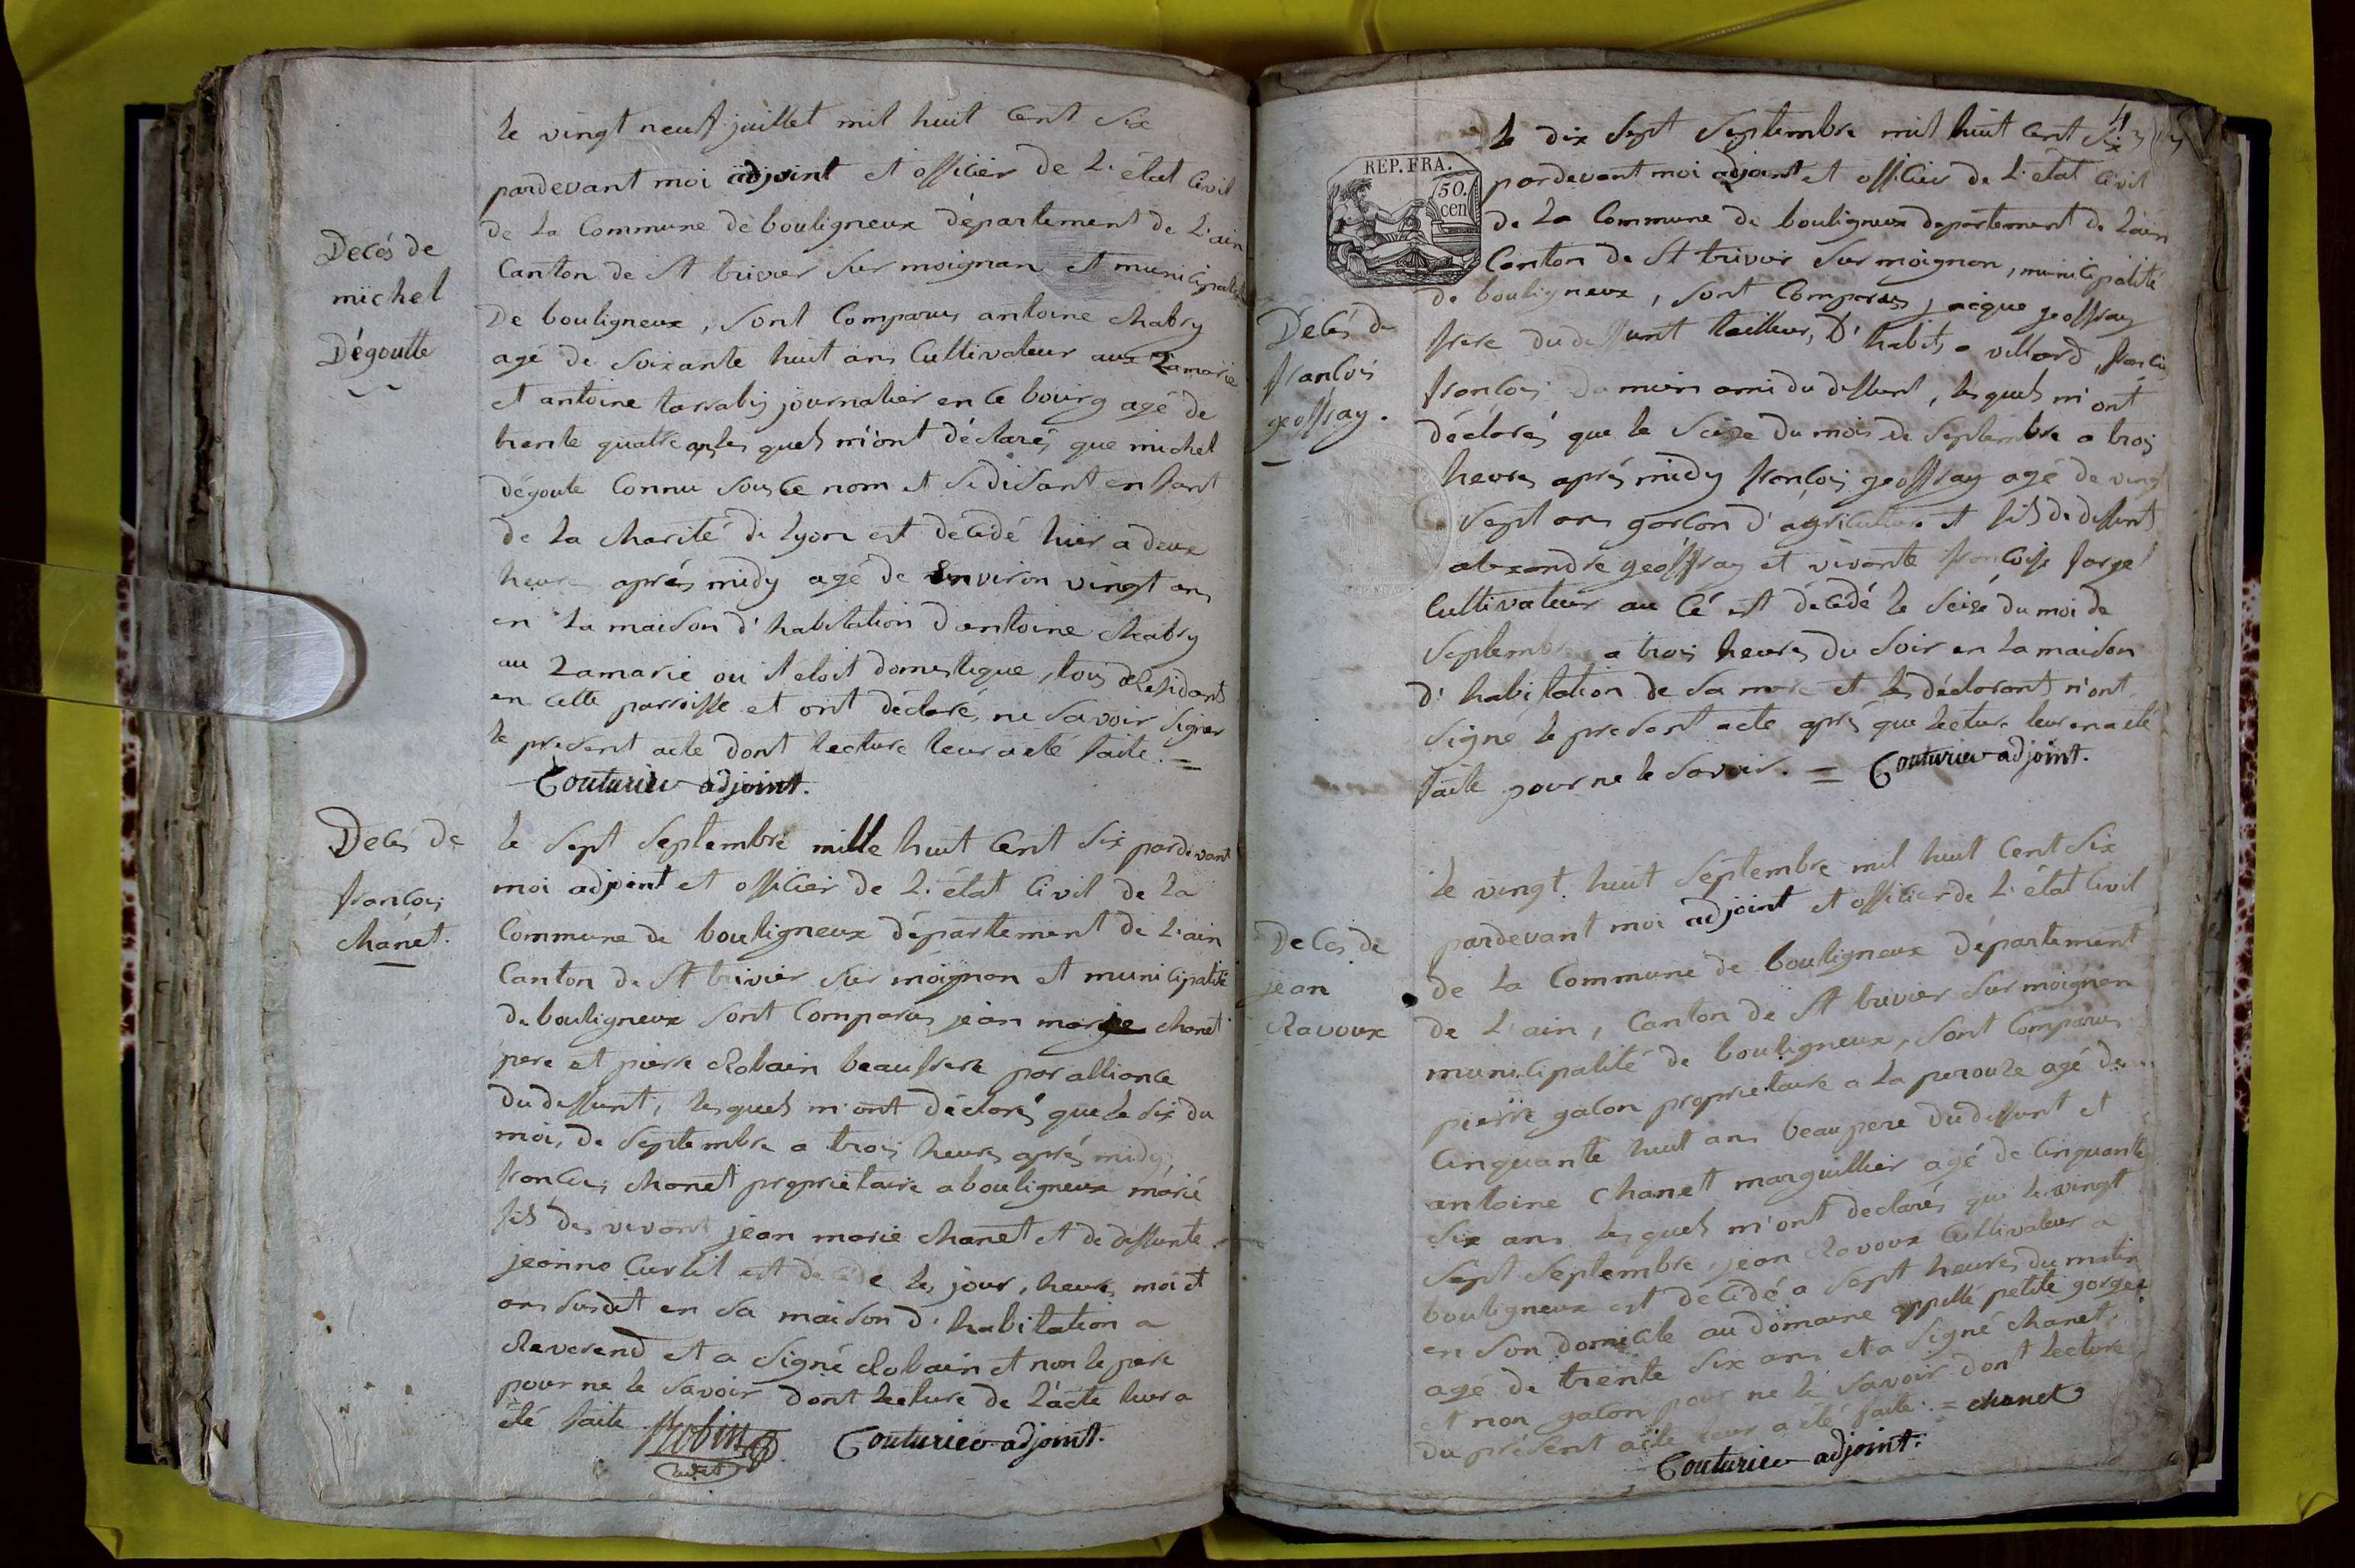 Decés de
michel
Dégoutte
le vingt neuf juillet mil huit Cent Six
pardevant moi adjoint et officier de L'état Civil
de La Commune de bouligneux département de L'ain
Canton de St trivier Sur moignan et municipalité
De bouligneux, Sont Comparus antoine chabry
agé de Soixante huit ans Cultivateur aux Lamarie
et antoine journalier en Ce bourg agé de
trente quatre ans les quels m'ont déclarés que michel
dégoute Connu sous Ce nom et Se disant enfant
de La charité de Lyon est décédé hier a deux
heures aprés midy agé de Environ vingt ans
en La maison d'habitation d'antoine chabry
au Lamarie ou il etoit domestique, tous Residants
en Cette parroisse et ont déclaré ne Savoir Signer
le present acte dont lecture leur a eté faite. =
Couturier adjoint.
Deces de
francois
chanet.
le Sept Septembre mille huit Cent Six pardevant
moi adjoint et officier de L'état Civil de La
Commune de bouligneux département de L'ain
Canton de St trivier Sur moignan et municipalité
de bouligneux Sont Comparus jean marie chanet
pere et pierre Robain beaufrere par alliance
du deffunt, les quels m'ont déclarés que le Six du
mois de Septembre a trois heures aprés midy,
francois chanet propriétaire a bouligneux marié
fils des vivant jean marie chanet et de deffunte
jeanne Curtil est décédé les jour, heure, moi et
ans Susdit en Sa maison d'habitation a
Reverend et a Signé Robain et non le pere
pour ne le Savoir dont Lecture de L'acte leur a
été faite Robin Couturier adjoint.
4
REP. FRA.
50.
cen
Decés de
francois
geoffray.
le dix Sept Septembre mil huit Cent Six
pardevant moi adjoint et officier de L'état Civil
de La Commune de bouligneux departement de L'ain
Canton de St trivier Sur moignan, municipalité
de bouligneux, Sont Comparus jacque geoffray
frere du deffunt tailleur, D'habits a villard,
francois Damien ami du deffunt, les quels m'ont
déclarés que le Seize Du mois de Septembre a trois
heures aprés midy francois geoffray agé de vingt
Sept ans garcon d'agriculture et fils de deffunt
alexandre geoffray et vivante francoise farge
Cultivateur au Cé est décédé le Seize du moi de
Septembre a trois heures Du Soir en La maison
d'habitation de Sa mere et les déclarant n'ont
Signé le present acte aprés que lecture leur en a eté
faite pour ne le Savoir. = Couturier adjoint.
Deces de
jean
Ravoux
le vingt huit Septembre mil huit Cent Six
pardevant moi adjoint et officier de L'état Civil
de La Commune de bouligneux Département
de L'ain, Canton de St trivier Sur moignan
municipalité de bouligneux, Sont Comparus
pierre galon proprietaire a La perouze agé de
Cinquante huit ans beaupere du deffunt et
antoine chanet marguillier agé de Cinquante
Six ans les quels m'ont declarés que le vingt
Sept Septembre, jean Ravoux Cultivateur a
bouligneux est décédé a Sept heures du matin
en Son domicile au domaine appellé petite gorges
agé de trente Six ans et a Signé chanet,
et non galon pour ne le Savoir dont lecture
du présent acte leur a été faite. = chanet
Couturier adjoint.